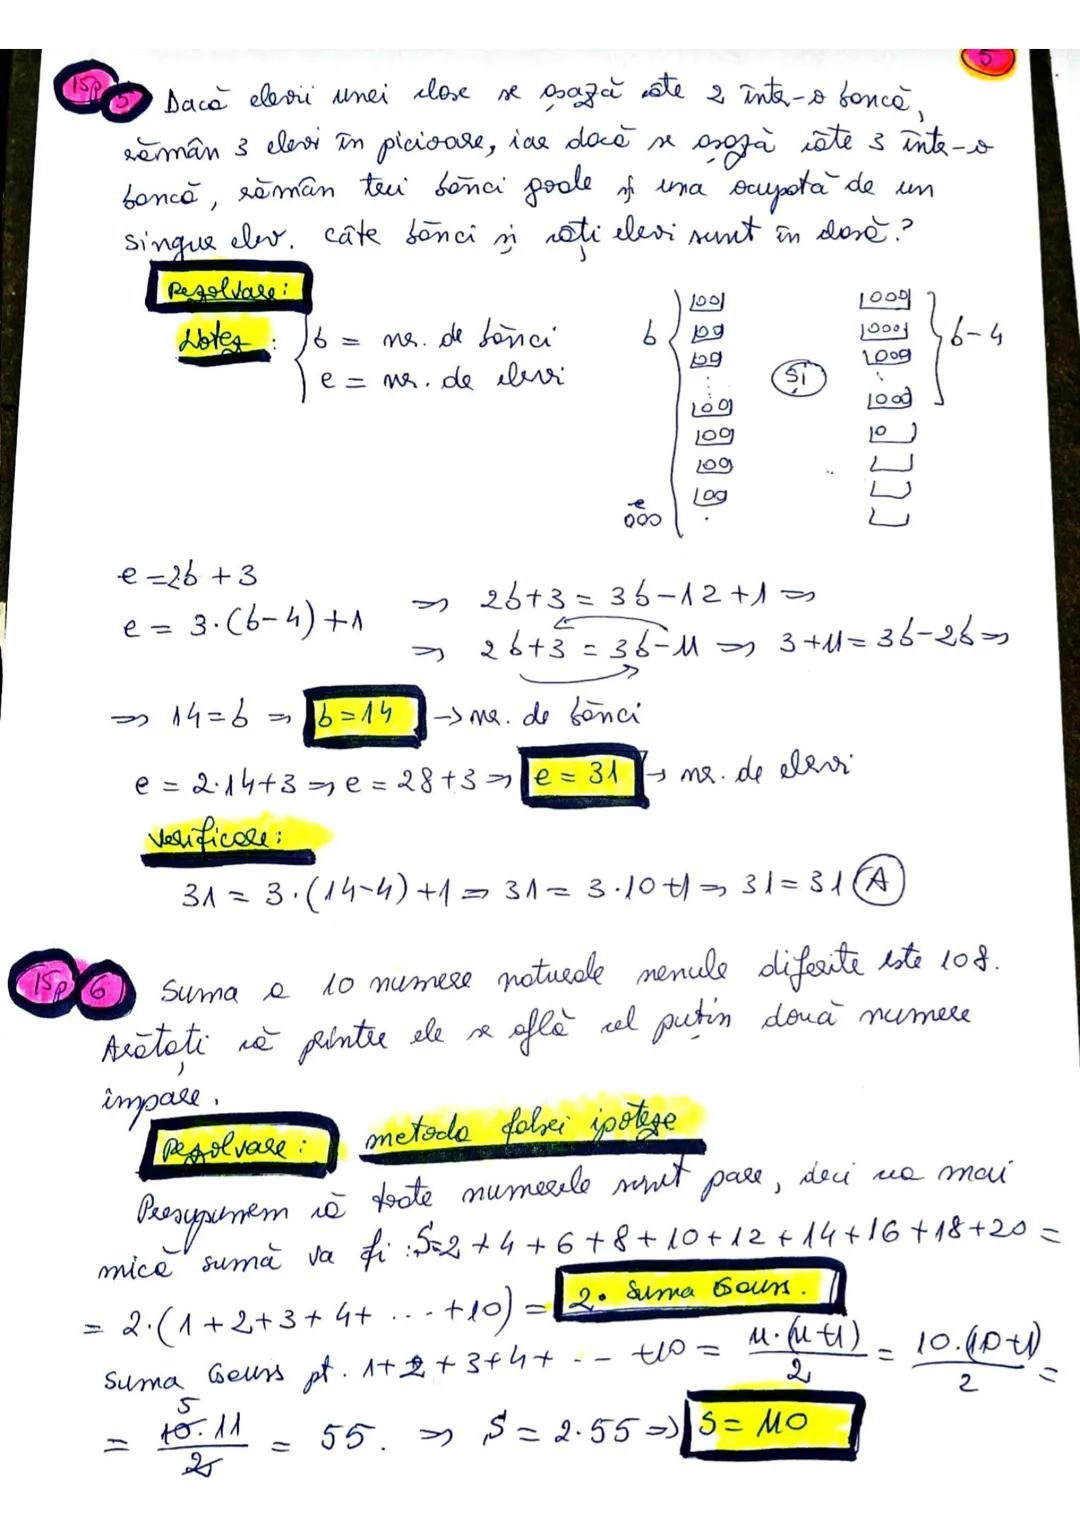 5
15p 5 Dacă elevii unei clase se așază câte 2 într-o bancă,
rămân 3 elevi în picioare, iar dacă se așază câte 3 într-o
bancă, rămân trei bănci goale și una ocupată de un
singur elev. Câte bănci și câți elevi sunt în clasă?
Rezolvare:
Notez : b = nr. de bănci
e = nr. de elevi
b
ȘI
b-4
e = 2b + 3
e = 3·(b-4)+1
⇒ 2b+3 = 3b-12+1 ⇒
⇒ 2b+3 = 3b-11 ⇒ 3+11 = 3b-2b ⇒
⇒ 14=b ⇒ b=14 → nr. de bănci
e = 2·14+3 ⇒ e = 28+3 ⇒ e = 31 → nr. de elevi
Verificare:
31 = 3·(14-4)+1 ⇒ 31 = 3·10+1 ⇒ 31=31 (A)
15p 6 Suma a 10 numere naturale nenule diferite este 108.
Arătați că printre ele se află cel puțin două numere
impare.
Rezolvare: metoda falsei ipoteze
Presupunem că toate numerele sunt pare, deci cea mai
mică sumă va fi : S=2+4+6+8+10+12+14+16+18+20 =
= 2·(1+2+3+4+ ... +10) = 2· Suma Gauss.
Suma Gauss pt. 1+2+3+4+ ... +10 = n·(n+1)/2 = 10·(10+1)/2 =
= 10·11/2 = 55. ⇒ S = 2·55 ⇒ S = 110